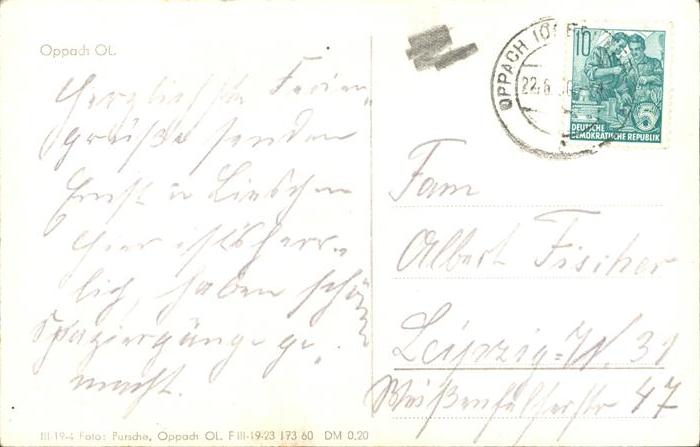 Oppach OL.
Herzlichste Ferien-
grüße senden
Ernst u Lieschen
Hier ist's herr-
lich, haben schön
Spaziergänge ge-
macht.
III-19-4 Foto: Pursche, Oppach OL. F III-19-23 173 60 DM 0,20
OPPACH
22.6.
10
5
DEUTSCHE
DEMOKRATISCHE REPUBLIK
Fam
Albert Fischer
Leipzig-W. 31
Weißenfelserstr 47